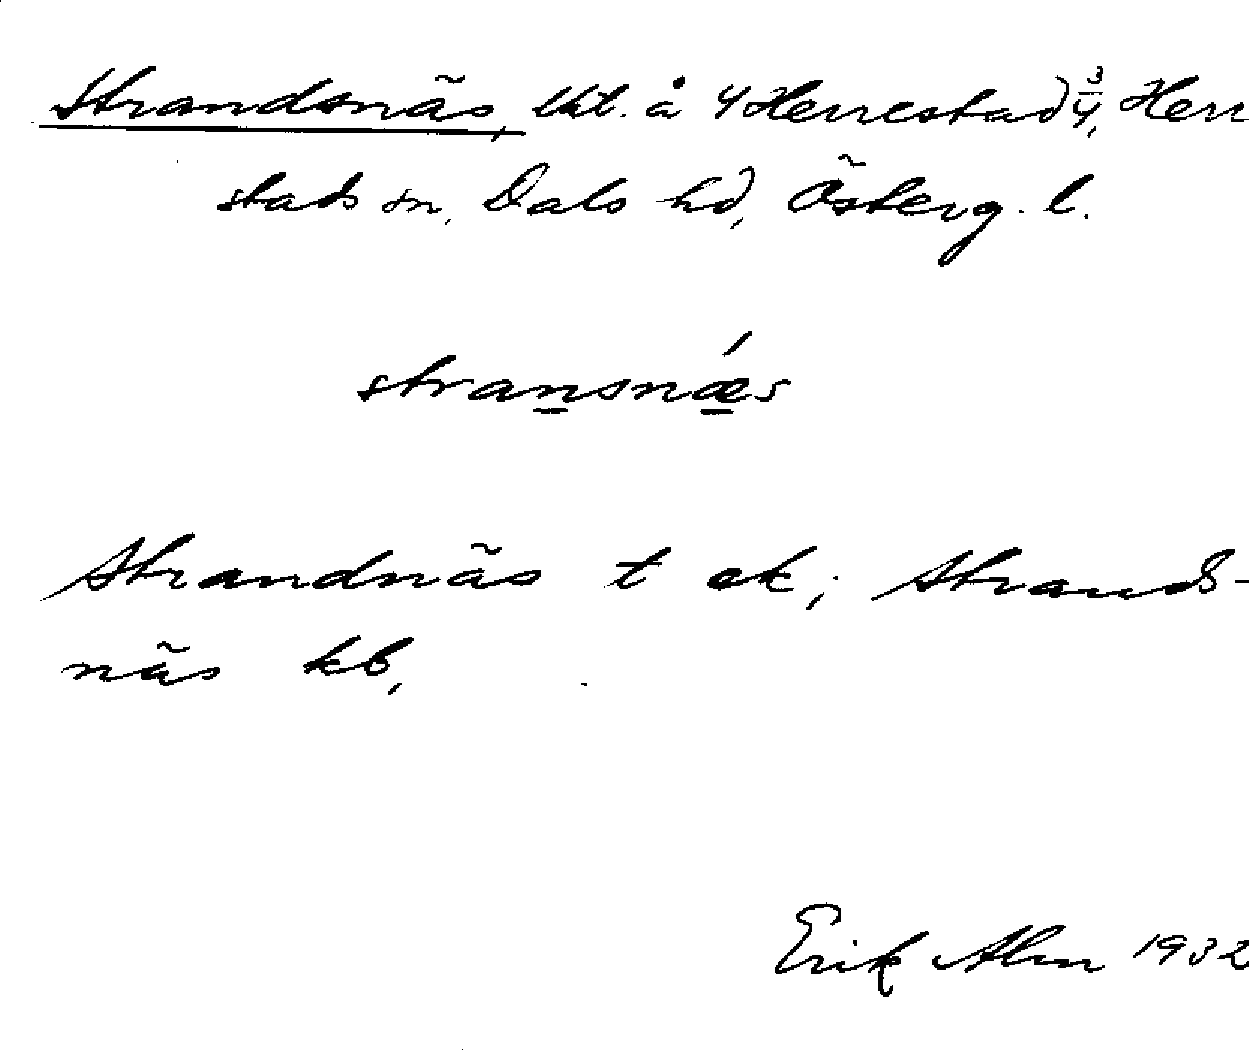 Strandsnäs, lht. å 4 Herrestad 3/4, Herr
stads sn, Dals hd, Österg. l.
stransnæ´s
Strandnäs t ek; Strands-
näs kb,
Erik Alm 1932